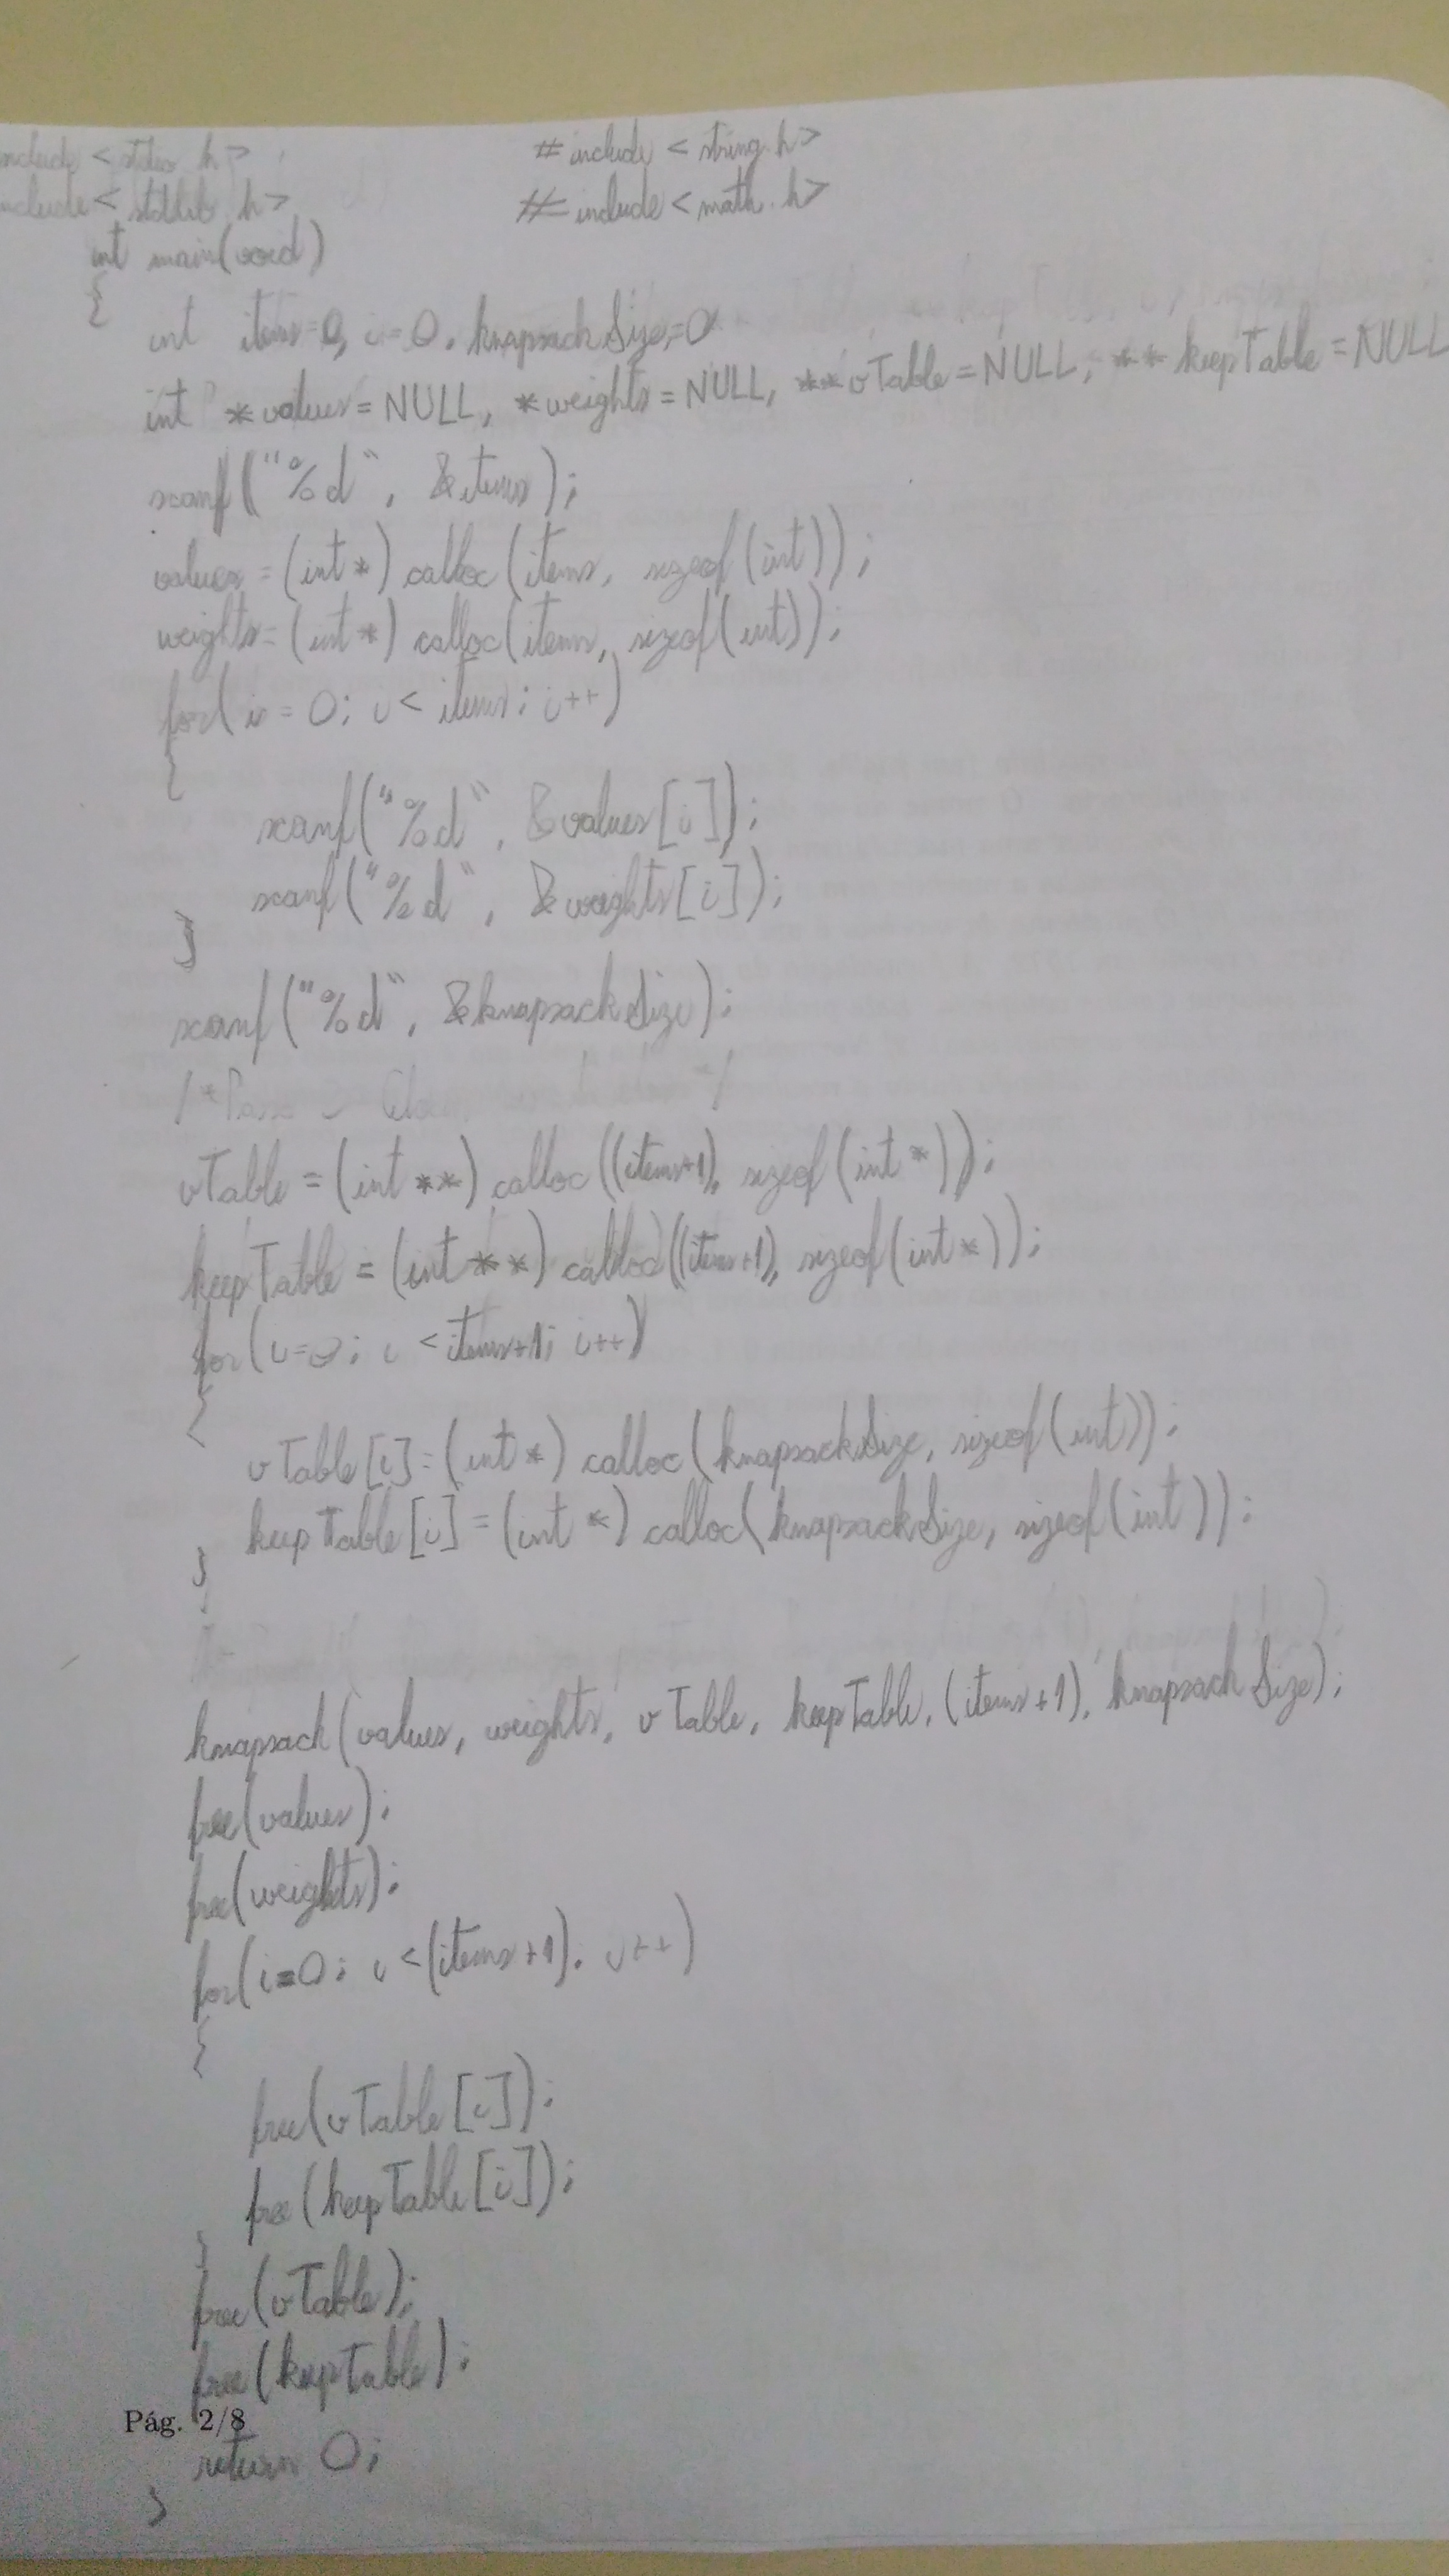 include <stdio.h> #include <string.h>
include <stdlib.h> #include <math.h>
int main(void)
{
int items=0, i=0, knapsackSize=0
int *values=NULL, *weights=NULL, **vTable=NULL, **keepTable=NULL
scanf("%d", &items);
values=(int*) calloc(items, sizeof(int));
weights=(int*) calloc(items, sizeof(int));
for(i=0; i<items; i++)
{
scanf("%d", &values[i]);
scanf("%d", &weights[i]);
}
scanf("%d", &knapsackSize);
vTable=(int**) calloc((items+1), sizeof(int*));
keepTable=(int**) calloc((items+1), sizeof(int*));
for(i=0; i<items+1; i++)
{
vTable[i]=(int*) calloc(knapsackSize, sizeof(int));
keepTable[i]=(int*) calloc(knapsackSize, sizeof(int));
}
knapsack(values, weights, vTable, keepTable, (items+1), knapsackSize);
free(values);
free(weights);
for(i=0; i<(items+1); i++)
{
free(vTable[i]);
free(keepTable[i]);
}
free(vTable);
free(keepTable);
Pág. 2/8
return 0;
}